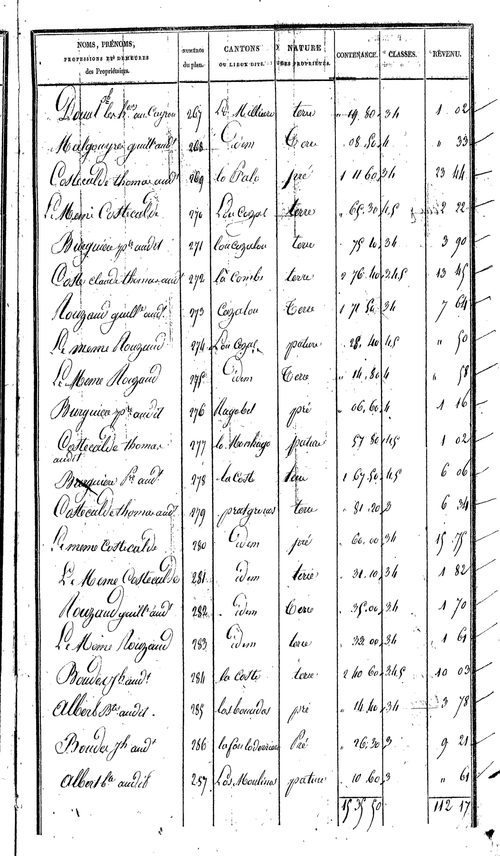 NOMS, PRÉNOMS, PROFESSIONS ET DEMEURES des Propriétaires. NUMÉROS du plan. CANTONS OU LIEUX DITS. NATURE DES PROPRIÉTÉS. CONTENANCE. CLASSES. REVENU.
267 terre " 19. 80. 34 1 02
Malgouyre guilh. audt 268 Idem Terre " 08 50. 4 " 33
Costecalde thomas audt 269 lo Prat pré 1 11 60. 34 23 44
Le Meme Costecalde 270 Lou Cazal terre " 65. 30. 45 2 22
Burguiere audit 271 lou cazalou terre " 75 10. 34 3 90
Costecalde thomas audt 272 la Combe terre 2 76. 40. 345 13 45
Nouzaud guilhe audt 273 Cazalou Terre 1 71 50. 34 7 64
Le meme Nouzaud 274 Lou Cazal pature " 28. 40 45 " 50
Le Meme Nouzaud 275 Idem Terre " 14. 80 4 " 58
Burguiere audit 276 Nagabel pré " 06. 60. 4 1 16
Costecalde thomas audit 277 pature " 57 80. 45 1 02
Burguiere audt 278 la Coste terre 1 67. 50. 45 6 06
Costecalde thomas audt 279 terre " 81. 20 3 6 34
Le meme Costecalde 280 Idem pré " 60. 00. 34 15 75
Le Meme Costecalde 281 idem terre " 31. 10. 34 1 82
Nouzaud guilhe audt 282 Idem Terre " 35. 00. 34 1 70
Le Meme Nouzaud 283 Idem terre " 33 00. 34 1 61
Boudes Jh audt 284 la Coste terre 2 40 60. 345 10 03
Albert audit. 285 las boucidos pré " 14. 40 34 3 78
Boudes Jh audt 286 Pré " 26. 30 3 9 21
Albert audit 287 Las Moulines pature " 10 60. 3 " 61
15 35 50 112 17